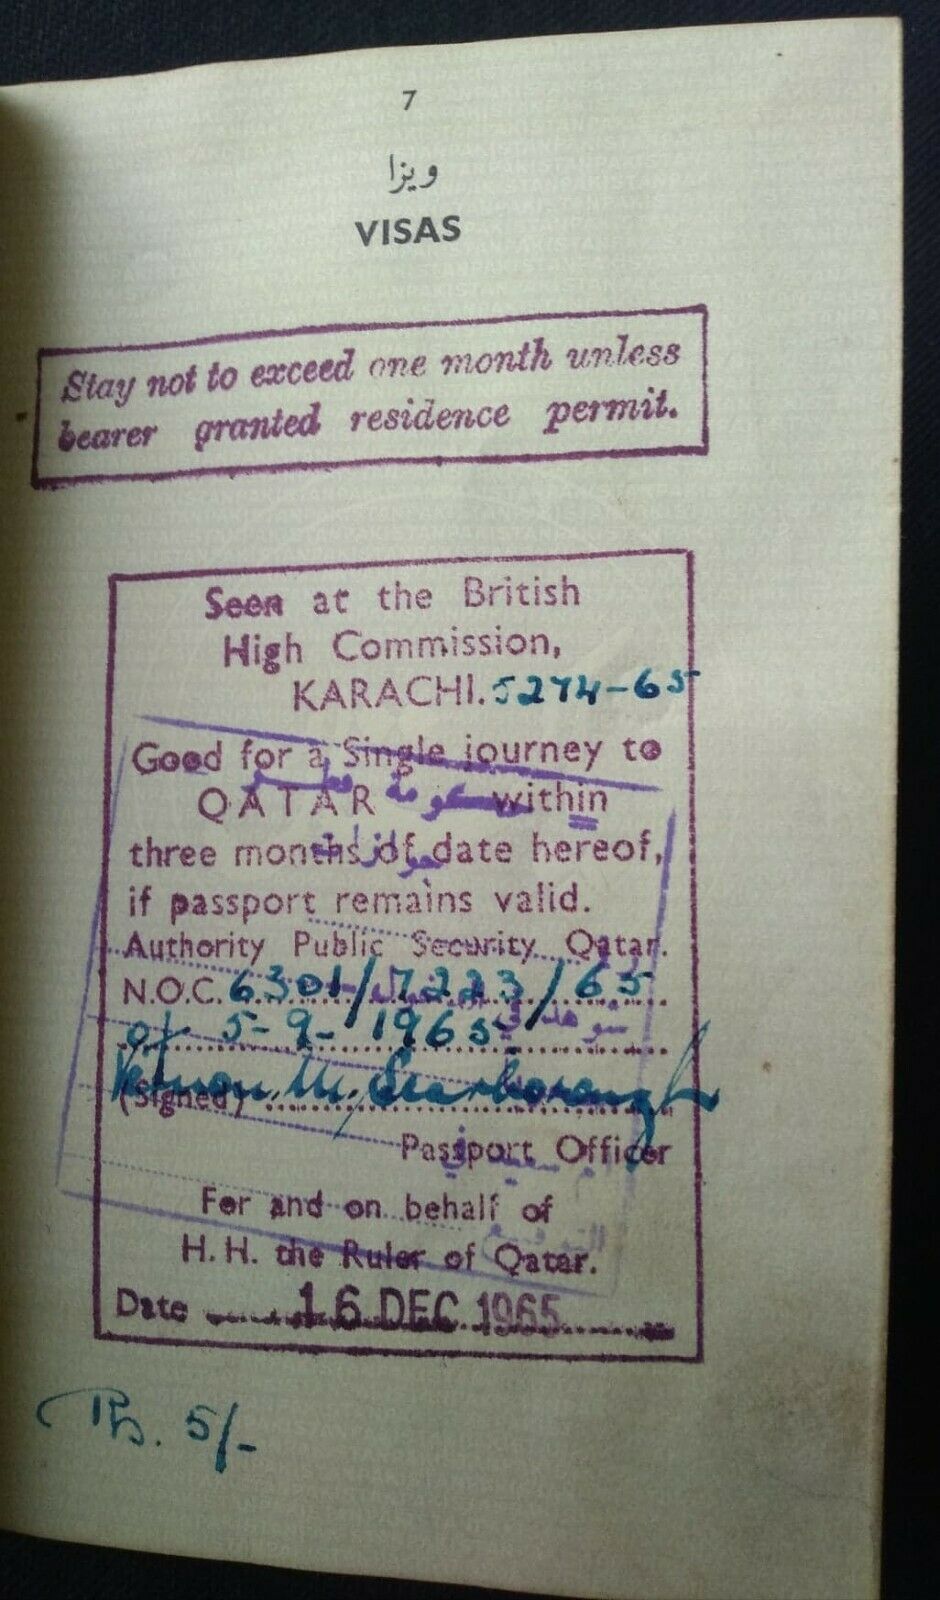 7
ویزا
VISAS
Stay not to exceed one month unless
bearer granted residence permit.
Seen at the British
High Commission,
KARACHI. 5274-65
Good for a Single journey to
QATAR within
three months of date hereof,
if passport remains valid.
Authority Public Security Qatar.
N.O.C. 6301/7223/65
of 5-9-1965.
(Signed) Vernon M. Scarborough
Passport Officer
For and on behalf of
H. H. the Ruler of Qatar.
Date 16 DEC 1965
Rs. 5/-